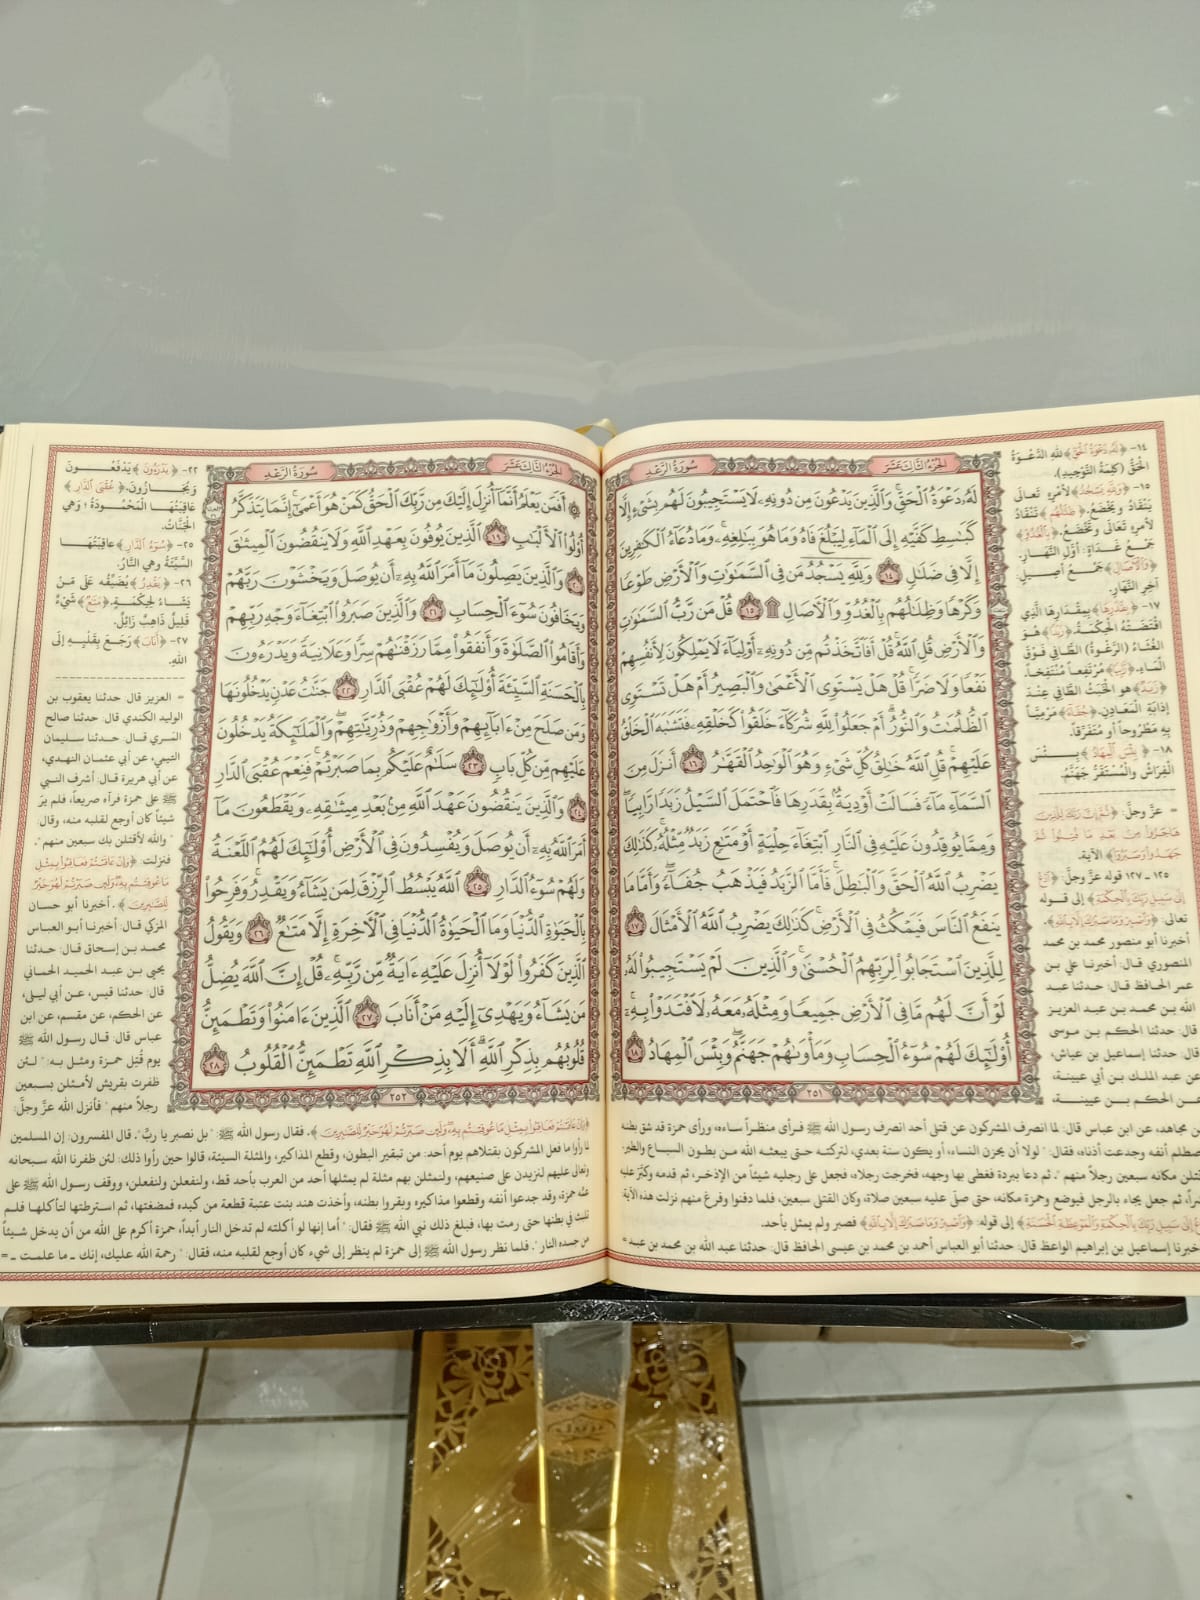 سُورَةُ الرَّعْدِ
الجُزْءُ الثَّالِثَ عَشَرَ
لَهُۥ دَعْوَةُ ٱلْحَقِّ ۖ وَٱلَّذِينَ يَدْعُونَ مِن دُونِهِۦ لَا يَسْتَجِيبُونَ لَهُم بِشَىْءٍ إِلَّا
كَبَـٰسِطِ كَفَّيْهِ إِلَى ٱلْمَآءِ لِيَبْلُغَ فَاهُ وَمَا هُوَ بِبَـٰلِغِهِۦ ۚ وَمَا دُعَآءُ ٱلْكَـٰفِرِينَ
إِلَّا فِى ضَلَـٰلٍ ١٤ وَلِلَّهِ يَسْجُدُ مَن فِى ٱلسَّمَـٰوَٰتِ وَٱلْأَرْضِ طَوْعًا
وَكَرْهًا وَظِلَـٰلُهُم بِٱلْغُدُوِّ وَٱلْـَٔاصَالِ ۩ ١٥ قُلْ مَن رَّبُّ ٱلسَّمَـٰوَٰتِ
وَٱلْأَرْضِ قُلِ ٱللَّهُ ۚ قُلْ أَفَٱتَّخَذْتُم مِّن دُونِهِۦٓ أَوْلِيَآءَ لَا يَمْلِكُونَ لِأَنفُسِهِمْ
نَفْعًا وَلَا ضَرًّا ۚ قُلْ هَلْ يَسْتَوِى ٱلْأَعْمَىٰ وَٱلْبَصِيرُ أَمْ هَلْ تَسْتَوِى
ٱلظُّلُمَـٰتُ وَٱلنُّورُ ۗ أَمْ جَعَلُوا۟ لِلَّهِ شُرَكَآءَ خَلَقُوا۟ كَخَلْقِهِۦ فَتَشَـٰبَهَ ٱلْخَلْقُ
عَلَيْهِمْ ۚ قُلِ ٱللَّهُ خَـٰلِقُ كُلِّ شَىْءٍ وَهُوَ ٱلْوَٰحِدُ ٱلْقَهَّـٰرُ ١٦ أَنزَلَ مِنَ
ٱلسَّمَآءِ مَآءً فَسَالَتْ أَوْدِيَةٌۢ بِقَدَرِهَا فَٱحْتَمَلَ ٱلسَّيْلُ زَبَدًا رَّابِيًا ۚ
وَمِمَّا يُوقِدُونَ عَلَيْهِ فِى ٱلنَّارِ ٱبْتِغَآءَ حِلْيَةٍ أَوْ مَتَـٰعٍ زَبَدٌ مِّثْلُهُۥ ۚ كَذَٰلِكَ
يَضْرِبُ ٱللَّهُ ٱلْحَقَّ وَٱلْبَـٰطِلَ ۚ فَأَمَّا ٱلزَّبَدُ فَيَذْهَبُ جُفَآءً ۖ وَأَمَّا مَا
يَنفَعُ ٱلنَّاسَ فَيَمْكُثُ فِى ٱلْأَرْضِ ۚ كَذَٰلِكَ يَضْرِبُ ٱللَّهُ ٱلْأَمْثَالَ ١٧
لِلَّذِينَ ٱسْتَجَابُوا۟ لِرَبِّهِمُ ٱلْحُسْنَىٰ ۚ وَٱلَّذِينَ لَمْ يَسْتَجِيبُوا۟ لَهُۥ
لَوْ أَنَّ لَهُم مَّا فِى ٱلْأَرْضِ جَمِيعًا وَمِثْلَهُۥ مَعَهُۥ لَٱفْتَدَوْا۟ بِهِۦٓ ۚ
أُو۟لَـٰٓئِكَ لَهُمْ سُوٓءُ ٱلْحِسَابِ وَمَأْوَىٰهُمْ جَهَنَّمُ ۖ وَبِئْسَ ٱلْمِهَادُ ١٨
٢٥١
١٤- ﴿لَهُ دَعْوَةُ الْحَقِّ﴾ لله الدَّعْوَةُ
الْحَقُّ (كَلِمَةُ التَّوْحِيدِ).
١٥- ﴿وَلِلَّهِ يَسْجُدُ﴾ لأمرِهِ تَعَالَى
يَنْقَادُ وَيَخْضَعُ. ﴿ظِلَالُهُم﴾ تَنْقَادُ
لأمرِهِ تَعَالَى وَتَخْضَعُ. ﴿بِالْغُدُوِّ﴾
جَمْعُ غَدَاةٍ: أوَّلِ النَّهَارِ.
﴿وَالْآصَالِ﴾ جَمْعُ أَصِيلٍ:
آخِرِ النَّهَارِ.
١٧- ﴿بِقَدَرِهَا﴾ بِمِقْدَارِهَا الَّذِي
اقْتَضَتْهُ الْحِكْمَةُ. ﴿زَبَدًا﴾ هُوَ
الْغُثَاءُ (الرَّغْوَةُ) الطَّافِي فَوْقَ
الْمَاءِ. ﴿رَابِيًا﴾ مُرْتَفِعاً مُنْتَفِخاً.
﴿زَبَدٌ﴾ هو الْخَبَثُ الطَّافِي عِنْدَ
إذَابَةِ الْمَعَادِنِ. ﴿جُفَاءً﴾ مَرْمِيّاً
بِهِ مَطْرُوحاً أَوْ مُتَفَرِّقاً.
١٨- ﴿بِئْسَ الْمِهَادُ﴾ بِئْسَ
الْفِرَاشُ وَالْمُسْتَقَرُّ جَهَنَّمُ.
= عزَّ وجلَّ: ﴿ثُمَّ إِنَّ رَبَّكَ لِلَّذِينَ
هَاجَرُوا مِن بَعْدِ مَا فُتِنُوا ثُمَّ
جَاهَدُوا وَصَبَرُوا﴾ الآية.
١٢٥ - ١٢٧ قوله عزَّ وجلَّ: ﴿ادْعُ
إِلَى سَبِيلِ رَبِّكَ بِالْحِكْمَةِ﴾ إلى قوله
تعالى: ﴿وَاصْبِرْ وَمَا صَبْرُكَ إِلَّا بِاللَّهِ﴾.
أخبرنا أبو منصور محمد بن محمد
المنصوري قال: أخبرنا علي بن
عمر الحافظ قال: حدثنا عبد
الله بن محمد بن عبد العزيز
قال: حدثنا الحكم بن موسى
قال: حدثنا إسماعيل بن عياش،
عن عبد الملك بن أبي عيينة،
عن الحكم بن عيينة،
مجاهد، عن ابن عباس قال: لما انصرف المشركون عن قتلى أحد انصرف رسول الله ﷺ فرأى منظراً ساءه، ورأى حمزة قد شق بطنه
واصطلم أنفه وجدعت أذناه، فقال: "لولا أن يحزن النساء، أو يكون سنة بعدي، لتركته حتى يبعثه الله من بطون السباع والطير
مكانه سبعين رجلاً منهم". ثم دعا ببردة فغطى بها وجهه، فخرجت رجلاه، فجعل على رجليه شيئاً من الإذخر، ثم قدمه وكبّر عليه
ثم جعل يجاء بالرجل فيوضع وحمزة مكانه، حتى صلّى عليه سبعين صلاة، وكان القتلى سبعين، فلما دفنوا وفرغ منهم نزلت هذه الآية
إِلَى سَبِيلِ رَبِّكَ بِالْحِكْمَةِ وَالْمَوْعِظَةِ الْحَسَنَةِ﴾ إلى قوله: ﴿وَاصْبِرْ وَمَا صَبْرُكَ إِلَّا بِاللَّهِ﴾ فصبر ولم يمثل بأحد.
إسماعيل بن إبراهيم الواعظ قال: حدثنا أبو العباس أحمد بن محمد بن عيسى الحافظ قال: حدثنا عبد الله بن محمد بن عبد =
الجُزْءُ الثَّالِثَ عَشَرَ
سُورَةُ الرَّعْدِ
۞ أَفَمَن يَعْلَمُ أَنَّمَآ أُنزِلَ إِلَيْكَ مِن رَّبِّكَ ٱلْحَقُّ كَمَنْ هُوَ أَعْمَىٰٓ ۚ إِنَّمَا يَتَذَكَّرُ
أُو۟لُوا۟ ٱلْأَلْبَـٰبِ ١٩ ٱلَّذِينَ يُوفُونَ بِعَهْدِ ٱللَّهِ وَلَا يَنقُضُونَ ٱلْمِيثَـٰقَ
٢٠ وَٱلَّذِينَ يَصِلُونَ مَآ أَمَرَ ٱللَّهُ بِهِۦٓ أَن يُوصَلَ وَيَخْشَوْنَ رَبَّهُمْ
وَيَخَافُونَ سُوٓءَ ٱلْحِسَابِ ٢١ وَٱلَّذِينَ صَبَرُوا۟ ٱبْتِغَآءَ وَجْهِ رَبِّهِمْ
وَأَقَامُوا۟ ٱلصَّلَوٰةَ وَأَنفَقُوا۟ مِمَّا رَزَقْنَـٰهُمْ سِرًّا وَعَلَانِيَةً وَيَدْرَءُونَ
بِٱلْحَسَنَةِ ٱلسَّيِّئَةَ أُو۟لَـٰٓئِكَ لَهُمْ عُقْبَى ٱلدَّارِ ٢٢ جَنَّـٰتُ عَدْنٍ يَدْخُلُونَهَا
وَمَن صَلَحَ مِنْ ءَابَآئِهِمْ وَأَزْوَٰجِهِمْ وَذُرِّيَّـٰتِهِمْ ۖ وَٱلْمَلَـٰٓئِكَةُ يَدْخُلُونَ
عَلَيْهِم مِّن كُلِّ بَابٍ ٢٣ سَلَـٰمٌ عَلَيْكُم بِمَا صَبَرْتُمْ ۚ فَنِعْمَ عُقْبَى ٱلدَّارِ
٢٤ وَٱلَّذِينَ يَنقُضُونَ عَهْدَ ٱللَّهِ مِنۢ بَعْدِ مِيثَـٰقِهِۦ وَيَقْطَعُونَ مَآ
أَمَرَ ٱللَّهُ بِهِۦٓ أَن يُوصَلَ وَيُفْسِدُونَ فِى ٱلْأَرْضِ ۙ أُو۟لَـٰٓئِكَ لَهُمُ ٱللَّعْنَةُ
وَلَهُمْ سُوٓءُ ٱلدَّارِ ٢٥ ٱللَّهُ يَبْسُطُ ٱلرِّزْقَ لِمَن يَشَآءُ وَيَقْدِرُ ۚ وَفَرِحُوا۟
بِٱلْحَيَوٰةِ ٱلدُّنْيَا وَمَا ٱلْحَيَوٰةُ ٱلدُّنْيَا فِى ٱلْـَٔاخِرَةِ إِلَّا مَتَـٰعٌ ٢٦ وَيَقُولُ
ٱلَّذِينَ كَفَرُوا۟ لَوْلَآ أُنزِلَ عَلَيْهِ ءَايَةٌ مِّن رَّبِّهِۦ ۗ قُلْ إِنَّ ٱللَّهَ يُضِلُّ
مَن يَشَآءُ وَيَهْدِىٓ إِلَيْهِ مَنْ أَنَابَ ٢٧ ٱلَّذِينَ ءَامَنُوا۟ وَتَطْمَئِنُّ
قُلُوبُهُم بِذِكْرِ ٱللَّهِ ۗ أَلَا بِذِكْرِ ٱللَّهِ تَطْمَئِنُّ ٱلْقُلُوبُ ٢٨
٢٥٢
٢٢- ﴿يَدْرَءُونَ﴾ يَدْفَعُونَ
وَيُجَازُونَ. ﴿عُقْبَى الدَّارِ﴾
عَاقِبَتُهَا الْمَحْمُودَةُ؛ وَهِيَ
الْجَنَّاتُ.
٢٥- ﴿سُوءُ الدَّارِ﴾ عَاقِبَتُهَا
السَّيِّئَةُ وهي النَّارُ.
٢٦- ﴿يَقْدِرُ﴾ يُضَيِّقُهُ عَلَى مَنْ
يَشَاءُ لِحِكْمَةٍ. ﴿مَتَاعٌ﴾ شَيْءٌ
قَلِيلٌ ذَاهِبٌ زَائِلٌ.
٢٧- ﴿أَنَابَ﴾ رَجَعَ بِقَلْبِهِ إلَى
اللهِ.
= العزيز قال: حدثنا يعقوب بن
الوليد الكندي قال: حدثنا صالح
المري قال: حدثنا سليمان
التيمي، عن أبي عثمان النهدي،
عن أبي هريرة قال: أشرف النبي
ﷺ على حمزة فرآه صريعاً، فلم يرَ
شيئاً كان أوجع لقلبه منه، وقال:
"والله لأقتلن بك سبعين منهم".
فنزلت: ﴿وَإِنْ عَاقَبْتُمْ فَعَاقِبُوا بِمِثْلِ
مَا عُوقِبْتُم بِهِ وَلَئِن صَبَرْتُمْ لَهُوَ خَيْرٌ
لِّلصَّابِرِينَ﴾. أخبرنا أبو حسان
المزكي قال: أخبرنا أبو العباس
محمد بن إسحاق قال: حدثنا
يحيى بن عبد الحميد الحماني
قال: حدثنا قيس، عن أبي ليلى،
عن الحكم، عن مقسم، عن ابن
عباس قال: قال رسول الله ﷺ
يوم قُتِل حمزة ومثل به: "لئن
ظفرت بقريش لأمثلن بسبعين
رجلاً منهم" فأنزل الله عزَّ وجلَّ:
﴿وَإِنْ عَاقَبْتُمْ فَعَاقِبُوا بِمِثْلِ مَا عُوقِبْتُم بِهِ وَلَئِن صَبَرْتُمْ لَهُوَ خَيْرٌ لِّلصَّابِرِينَ﴾. فقال رسول الله ﷺ: "بل نصبر يا ربّ". قال المفسرون: إن المسلمين
لما رأوا ما فعل المشركون بقتلاهم يوم أحد: من تبقير البطون، وقطع المذاكير، والمثلة السيئة، قالوا حين رأوا ذلك: لئن ظفرنا الله سبحانه
وتعالى عليهم لنزيدن على صنيعهم، ولنمثلن بهم مثلة لم يمثلها أحد من العرب بأحد قط، ولنفعلن ولنفعلن، ووقف رسول الله ﷺ على
عمه حمزة، وقد جدعوا أنفه وقطعوا مذاكيره وبقروا بطنه، وأخذت هند بنت عتبة قطعة من كبده فمضغتها، ثم استرطتها لتأكلها فلم
تلبث في بطنها حتى رمت بها، فبلغ ذلك نبي الله ﷺ فقال: "أما إنها لو أكلته لم تدخل النار أبداً، حمزة أكرم على الله من أن يدخل شيئاً
من جسده النار". فلما نظر رسول الله ﷺ إلى حمزة لم ينظر إلى شيء كان أوجع لقلبه منه، فقال: "رحمة الله عليك، إنك - ما علمت - =